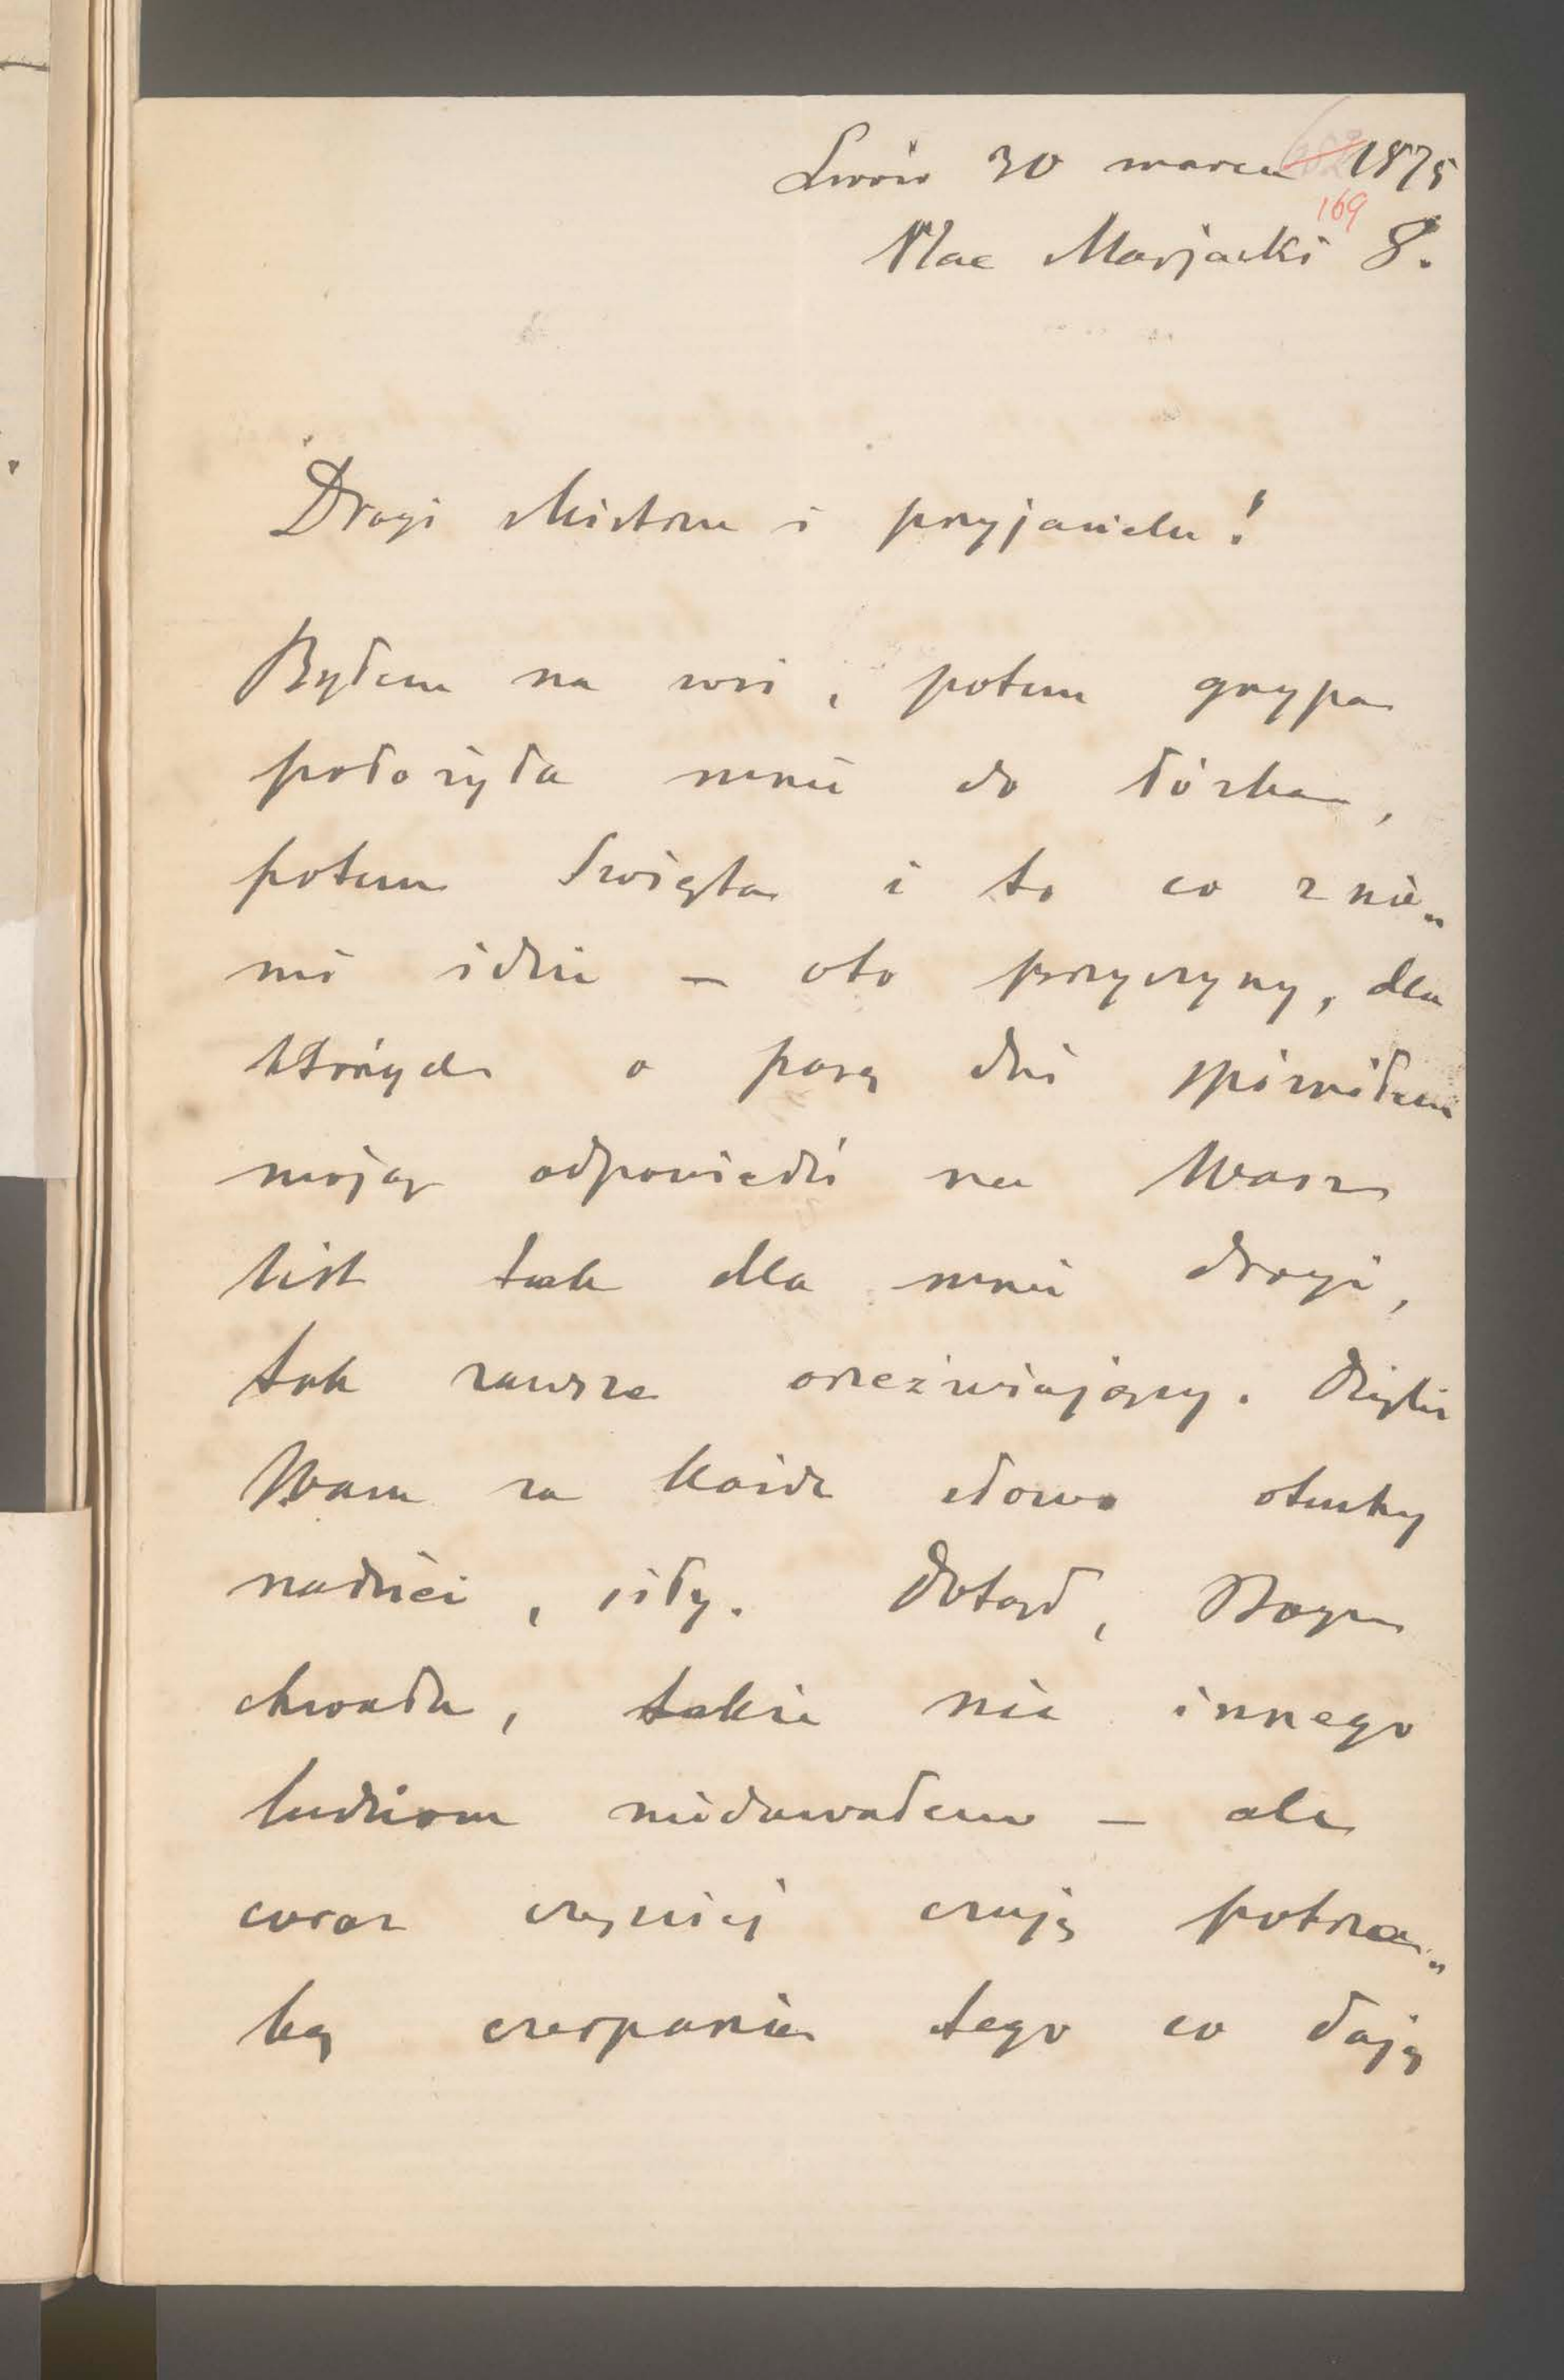 Lwów 30 marca 1875
169
Plac Marjacki 8.
Drogi Mistrzu i przyjacielu!
Byłem na wsi, potem grypa
położyła mnie do łóżka,
potem Święta i to co z nie„
mi idzie – oto przyczyny, dla
których o parę dni spóźniłem
moją odpowiedź na Wasz
list tak dla mnie drogi,
tak zawsze orzeźwiający. Dzięki
Wam za każde słowo otuchy
nadziei, siły. Dotąd, Bogu
chwała, także nic innego
ludziom niedawałem – ale
coraz częściej czuję potrze„
bę czerpania tego co dają